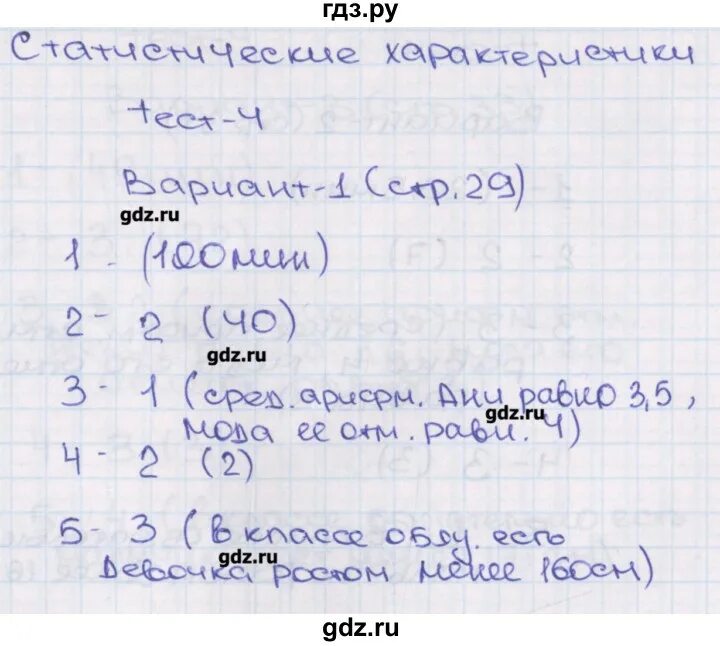 гдз.ру
Статистические характеристики
тест-4
Вариант-1 (стр. 29)
gdz.ru
1 - (120 мин)
2 - 2 (40)
gdz.ru
3 - 1 (сред. арифм. Ани равно 3,5,
gdz.ru
мода ее отм. равн. 4)
4 - 2 (2)
5 - 3 (в классе обяз. есть
gdz.ru
девочка ростом менее 160см)
gdz.ru